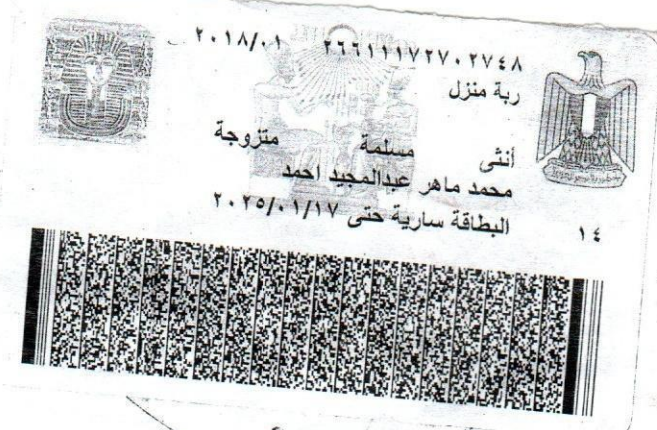 ٢٦٦١١١٧٢٧٠٢٧٤٨ ٢٠١٨/٠١
ربة منزل
أنثى مسلمة متزوجة
محمد ماهر عبدالمجيد احمد
البطاقة سارية حتى ٢٠٢٥/٠١/١٧
١٤